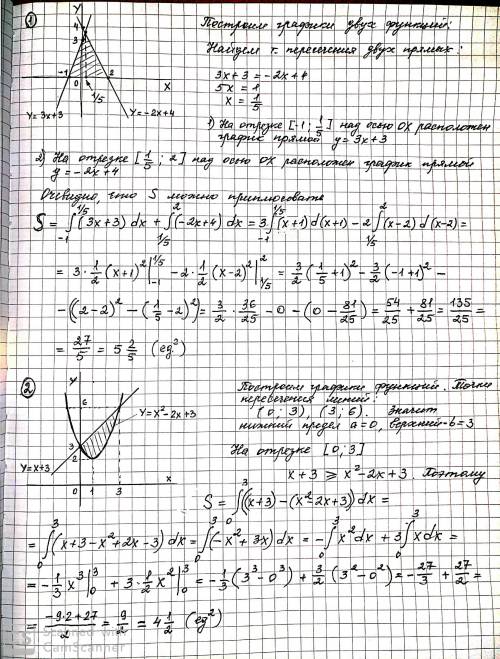 ①
y
4
3
-1
0
2
x
1/5
y=3x+3
y=-2x+4
Построим графики двух функций:
Найдем т. пересечения двух прямых:
3x+3=-2x+4
5x=1
x=1/5
1) На отрезке [-1; 1/5] над осью OX расположен
график прямой y=3x+3
2) На отрезке [1/5; 2] над осью OX расположен график прямой
y=-2x+4
Очевидно, что S можно приплюсовать
S=∫₋₁^{1/5}(3x+3)dx+∫_{1/5}^2(-2x+4)dx=3∫₋₁^{1/5}(x+1)d(x+1)-2∫_{1/5}^2(x-2)d(x-2)=
=3·1/2(x+1)²|₋₁^{1/5}-2·1/2(x-2)²|_{1/5}^2=3/2(1/5+1)²-3/2(-1+1)²-
-((2-2)²-(1/5-2)²)=3/2·36/25-0-(0-81/25)=54/25+81/25=135/25=
=27/5=5 2/5 (ед²)
②
y
6
3
2
y=x²-2x+3
y=x+3
0
1
3
x
Построим графики функций. Точки
пересечения линий:
(0;3), (3;6). Значит
нижний предел a=0, верхний-b=3
На отрезке [0;3]
x+3⩾x²-2x+3. Поэтому
S=∫₀³((x+3)-(x²-2x+3))dx=
=∫₀³(x+3-x²+2x-3)dx=∫₀³(-x²+3x)dx=-∫₀³x²dx+3∫₀³xdx=
=-1/3x³|₀³+3·1/2x²|₀³=-1/3(3³-0³)+3/2(3²-0²)=-27/3+27/2=
=(-9·2+27)/2=9/2=4 1/2 (ед²)
CS
Scanned with
CamScanner